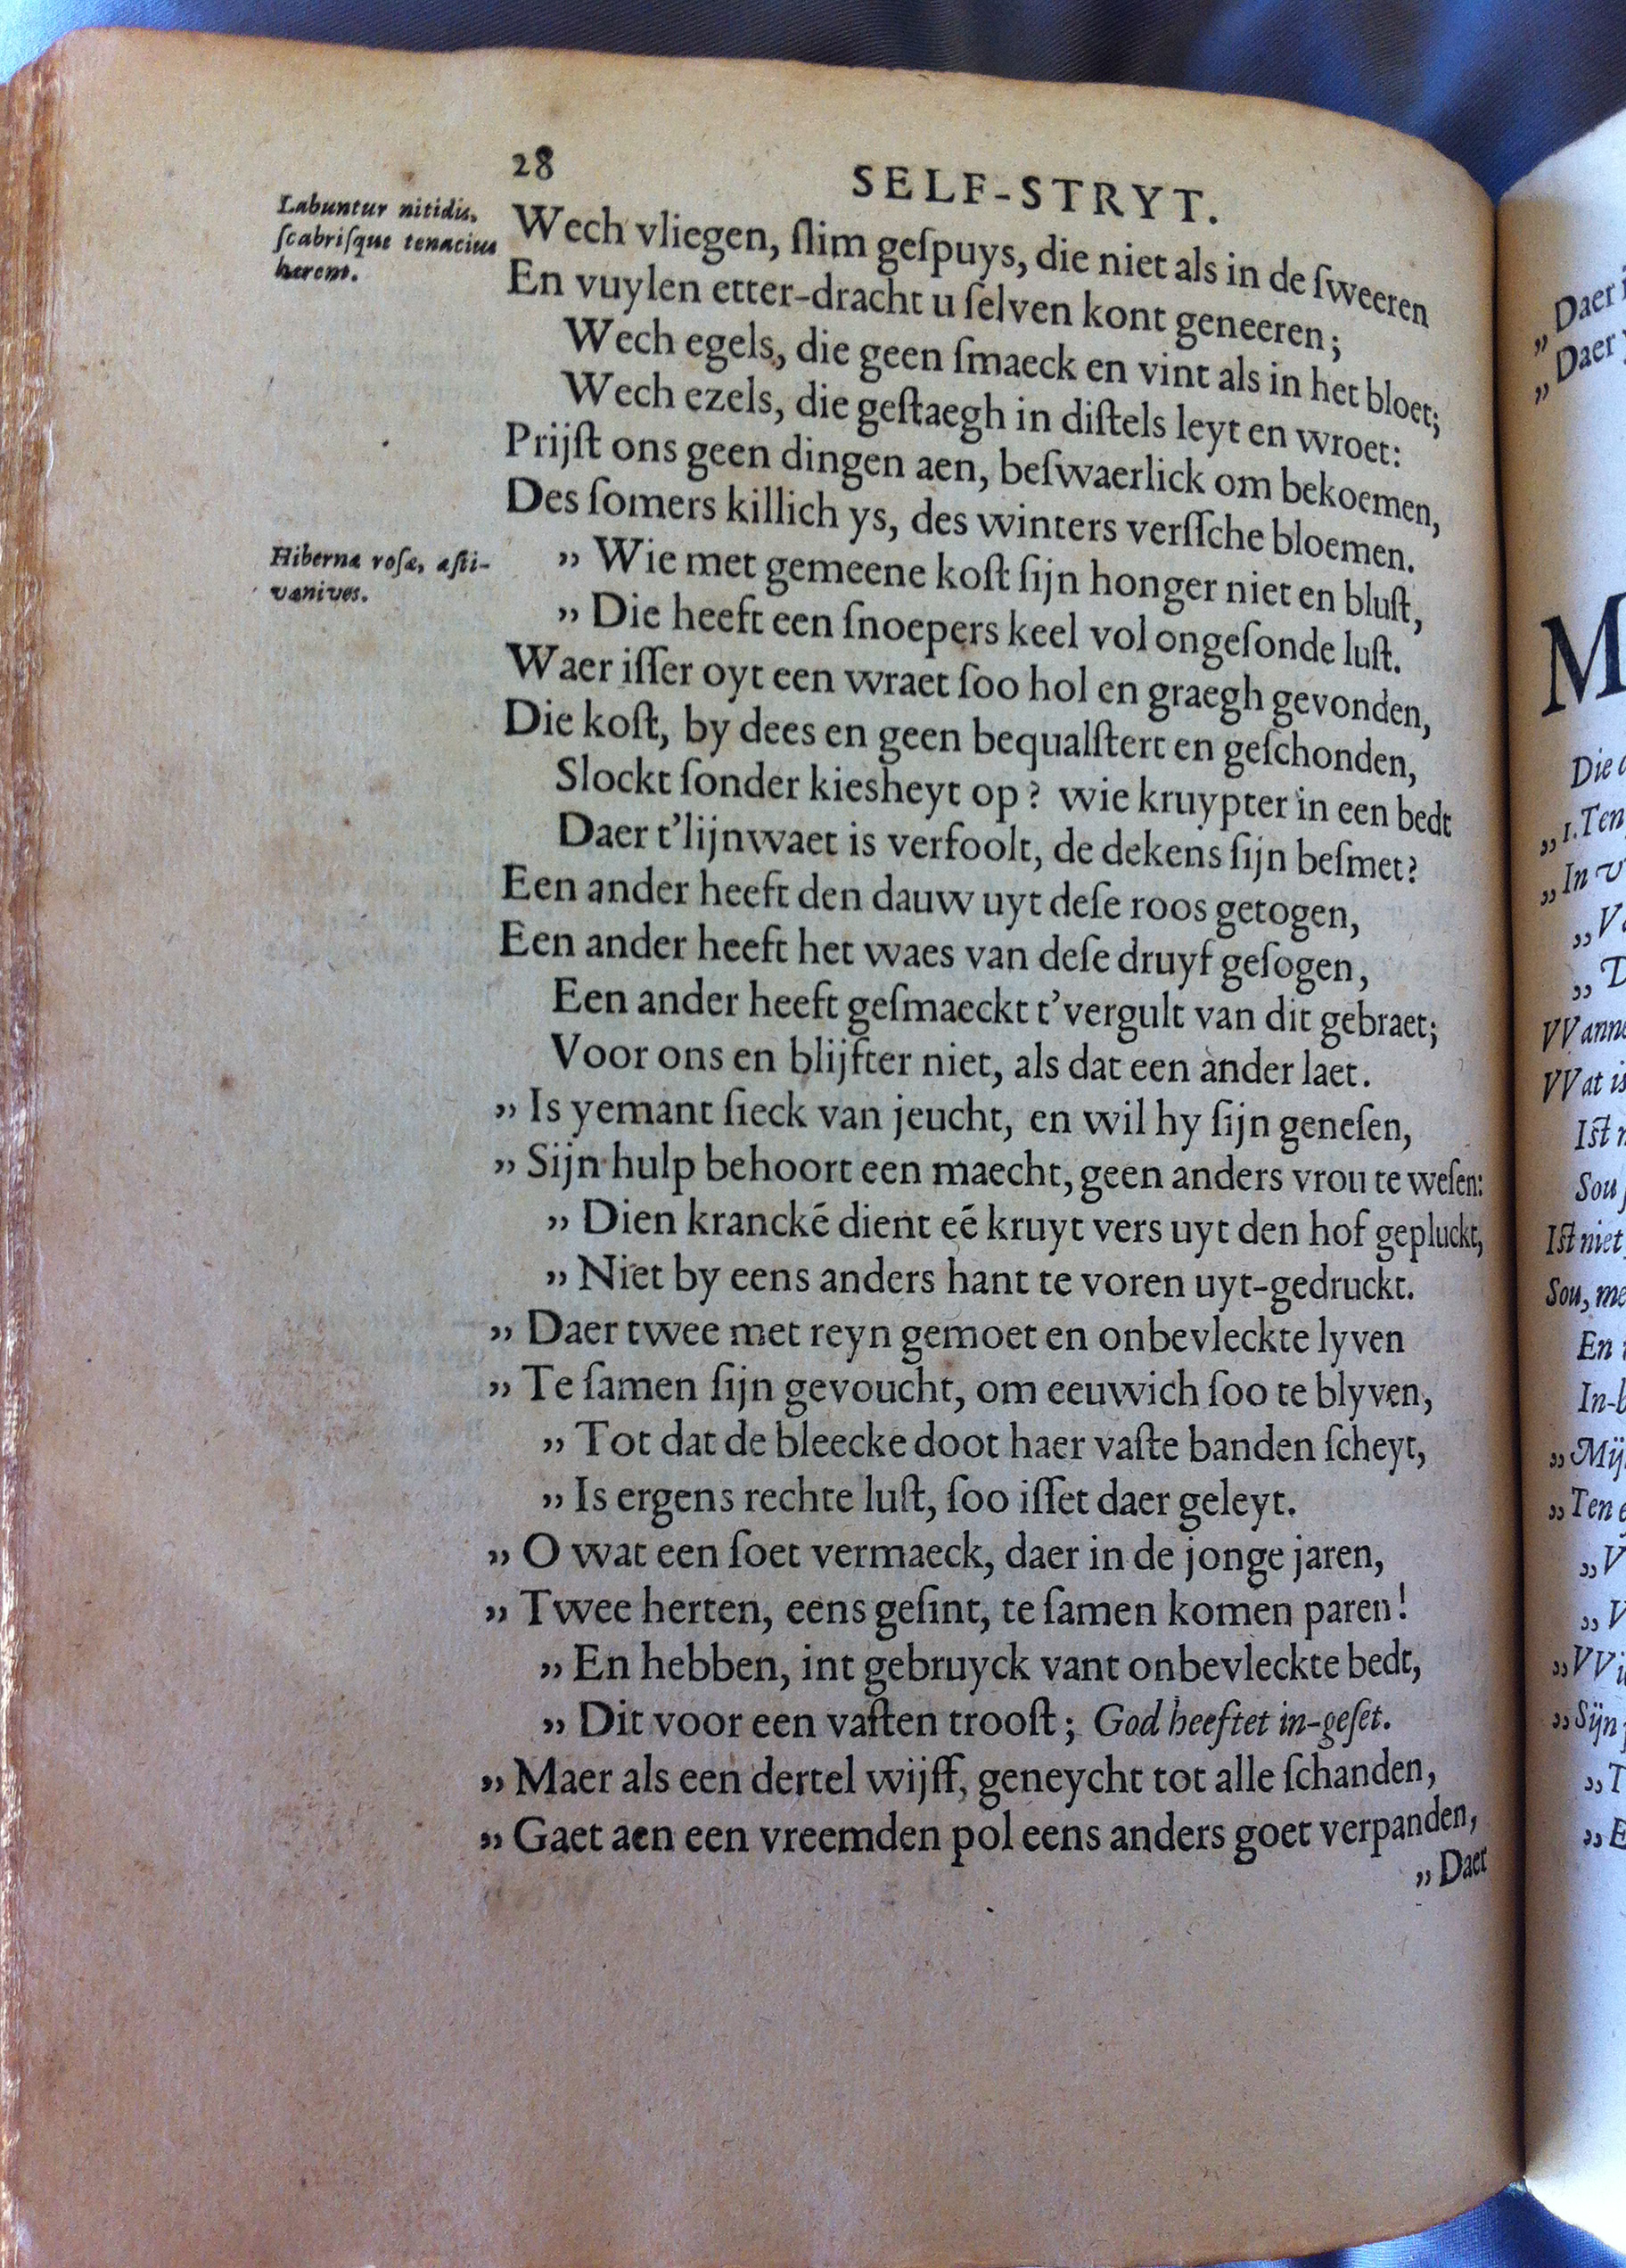 28
SELF-STRYT.
Labuntur nitidis,
ſcabriſque tenacius
hærent.
Wech vliegen, ſlim geſpuys, die niet als in de ſweeren
En vuylen etter-dracht u ſelven kont geneeren;
Wech egels, die geen ſmaeck en vint als in het bloet;
Wech ezels, die geſtaegh in diſtels leyt en wroet:
Prijſt ons geen dingen aen, beſwaerlick om bekoemen,
Des ſomers killich ys, des winters verſſche bloemen.
Hiberna roſæ, æſti-
væ nives.
„ Wie met gemeene koſt ſijn honger niet en bluſt,
„ Die heeft een ſnoepers keel vol ongeſonde luſt.
Waer iſſer oyt een wraet ſoo hol en graegh gevonden,
Die koſt, by dees en geen bequalſtert en geſchonden,
Slockt ſonder kiesheyt op? wie kruypter in een bedt
Daer t'lijnwaet is verſoolt, de dekens ſijn beſmet?
Een ander heeft den dauw uyt deſe roos getogen,
Een ander heeft het waes van deſe druyf geſogen,
Een ander heeft geſmaeckt t'vergult van dit gebraet;
Voor ons en blijfter niet, als dat een ander laet.
„ Is yemant ſieck van jeucht, en wil hy ſijn geneſen,
„ Sijn hulp behoort een maecht, geen anders vrou te weſen:
„ Dien kranckē dient eē kruyt vers uyt den hof gepluckt,
„ Niet by eens anders hant te voren uyt-gedruckt.
„ Daer twee met reyn gemoet en onbevleckte lyven
„ Te ſamen ſijn gevoucht, om eeuwich ſoo te blyven,
„ Tot dat de bleecke doot haer vaſte banden ſcheyt,
„ Is ergens rechte luſt, ſoo iſſet daer geleyt.
„ O wat een ſoet vermaeck, daer in de jonge jaren,
„ Twee herten, eens geſint, te ſamen komen paren!
„ En hebben, int gebruyck vant onbevleckte bedt,
„ Dit voor een vaſten trooſt; God heeftet in-geſet.
„ Maer als een dertel wijff, geneycht tot alle ſchanden,
„ Gaet aen een vreemden pol eens anders goet verpanden,
„ Daer
„ Daer
„ Daer
M
„ 1. Ten
„ In
VVat is
Iſt niet
Sou, me
En
„ Mij
„ Ten
„ Sijn